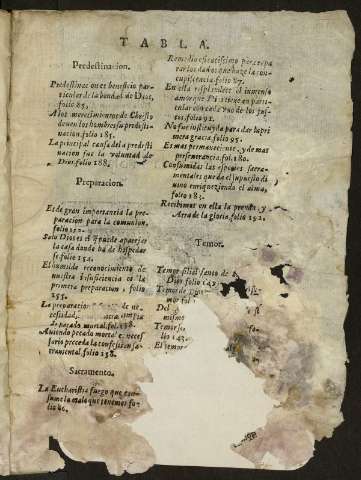 TABLA.
Predestinacion.
Predestinacion es beneficio par-
ticular de la bondad de Dios,
folio 85.
A los merecimientos de Christo
deuen los hombres su predesti-
nacion. folio 185.
La principal causa de la predesti
nacion fue la voluntad de
Dios. folio 188.
Preparacion.
Es de gran importancia la pre-
paracion para la comunion,
folio
Solo Dios es el que puede aparejar
la casa donde ha de hospedar
se folio 154.
El humilde reconocimiento de
nuestra insuficiencia es la
primera preparacion, folio
155.
La preparacion de ne-
cesidad,
de pecado mortal. fol. 158.
Auiendo pecado mortal es neces
sario preceda la confession sa-
cramental. folio 158.
Sacramento.
La Eucharistia fuego que con-
sume lo malo que tenemos fo-
lio 60.
Remedio eficacissimo para repa
rar los daños que haze la con-
cupiscencia. folio 87.
En ella resplandece el inmenso
amor que Dios tiene en parti-
cular con cada vno de los jus-
tos. folio 91.
No fue instituyda para dar la pri
mera gracia. folio 95.
Es mas permaneciente, y de mas
perseuerancia. fol. 180.
Consumidas las especies sacra-
mentales queda el supuesto di
uino enriqueziendo el alma,
folio 183.
Recibimos en ella la prenda, y
Arra de la gloria. folio 192.
Temor.
Temor filial santo de
Dios folio
Temor de
mor fol
Del
mismo
Temor
lio 143.
El temor